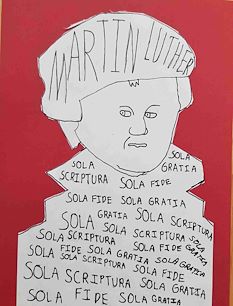 MARTIN LUTHER
SOLA
SCRIPTURA
SOLA
GRATIA
SOLA FIDE
SOLA FIDE SOLA GRATIA
GRATIA SOLA SCRIPTURA
SOLA SOLA SCRIPTURA SOLA
SOLA SCRIPTURA SOLA FIDE GRATIA
FIDE SOLA GRATIA SOLA GRATIA
SOLA SOLA SCRIPTURA SOLA FIDE
SOLA SCRIPTURA SOLA GRATIA
SOLA FIDE SOLA GRATIA